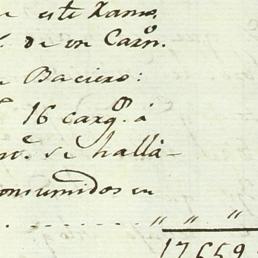 e este Ramo,
de un Carn.º
Baciero:
16 carg.ˢ á
se hallá-
consumidos en
" " "
17659